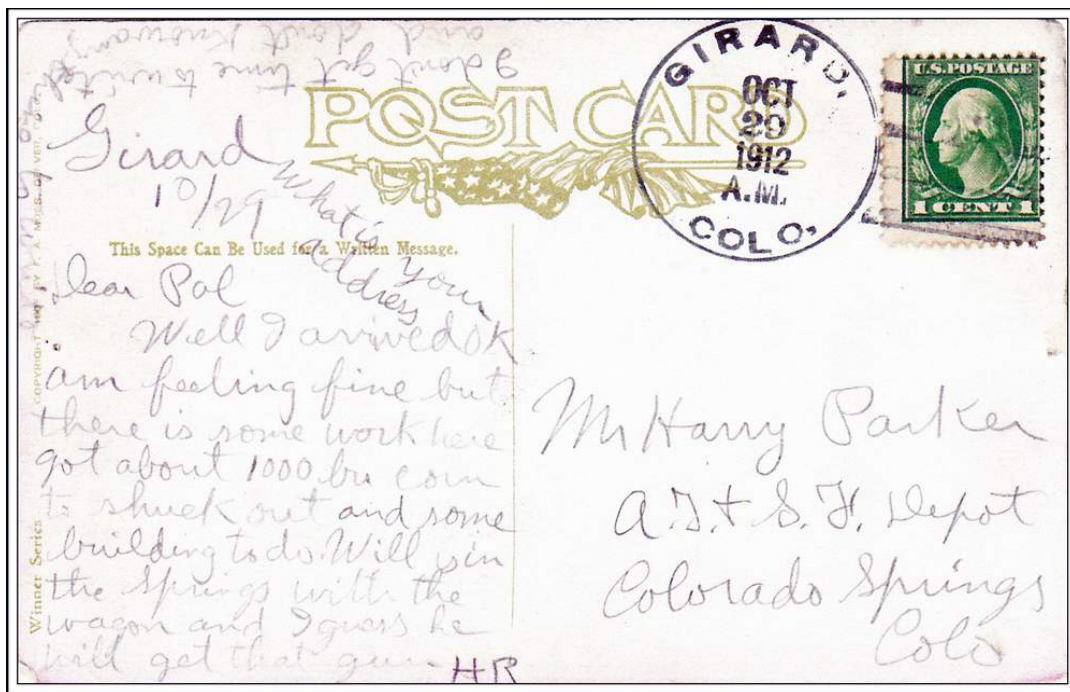 I dont get time to write
and dont know any
POST CARD
GIRARD,
OCT
29
1912
A.M.
COLO.
U.S. POSTAGE
1 CENT 1
Girard
10/29
What is
your
address
This Space Can Be Used for a Written Message.
Dear Pal
Well I arrived OK
am feeling fine but
there is some work here
got about 1000 bu corn
to shuck out and some
building to do. Will is in
the Springs with the
wagon and I guess he
will get that gun
HR
Mr Harry Parker
A.T. & S. F. Depot
Colorado Springs
Colo
Winner Series
COPYRIGHT BY DENVER.